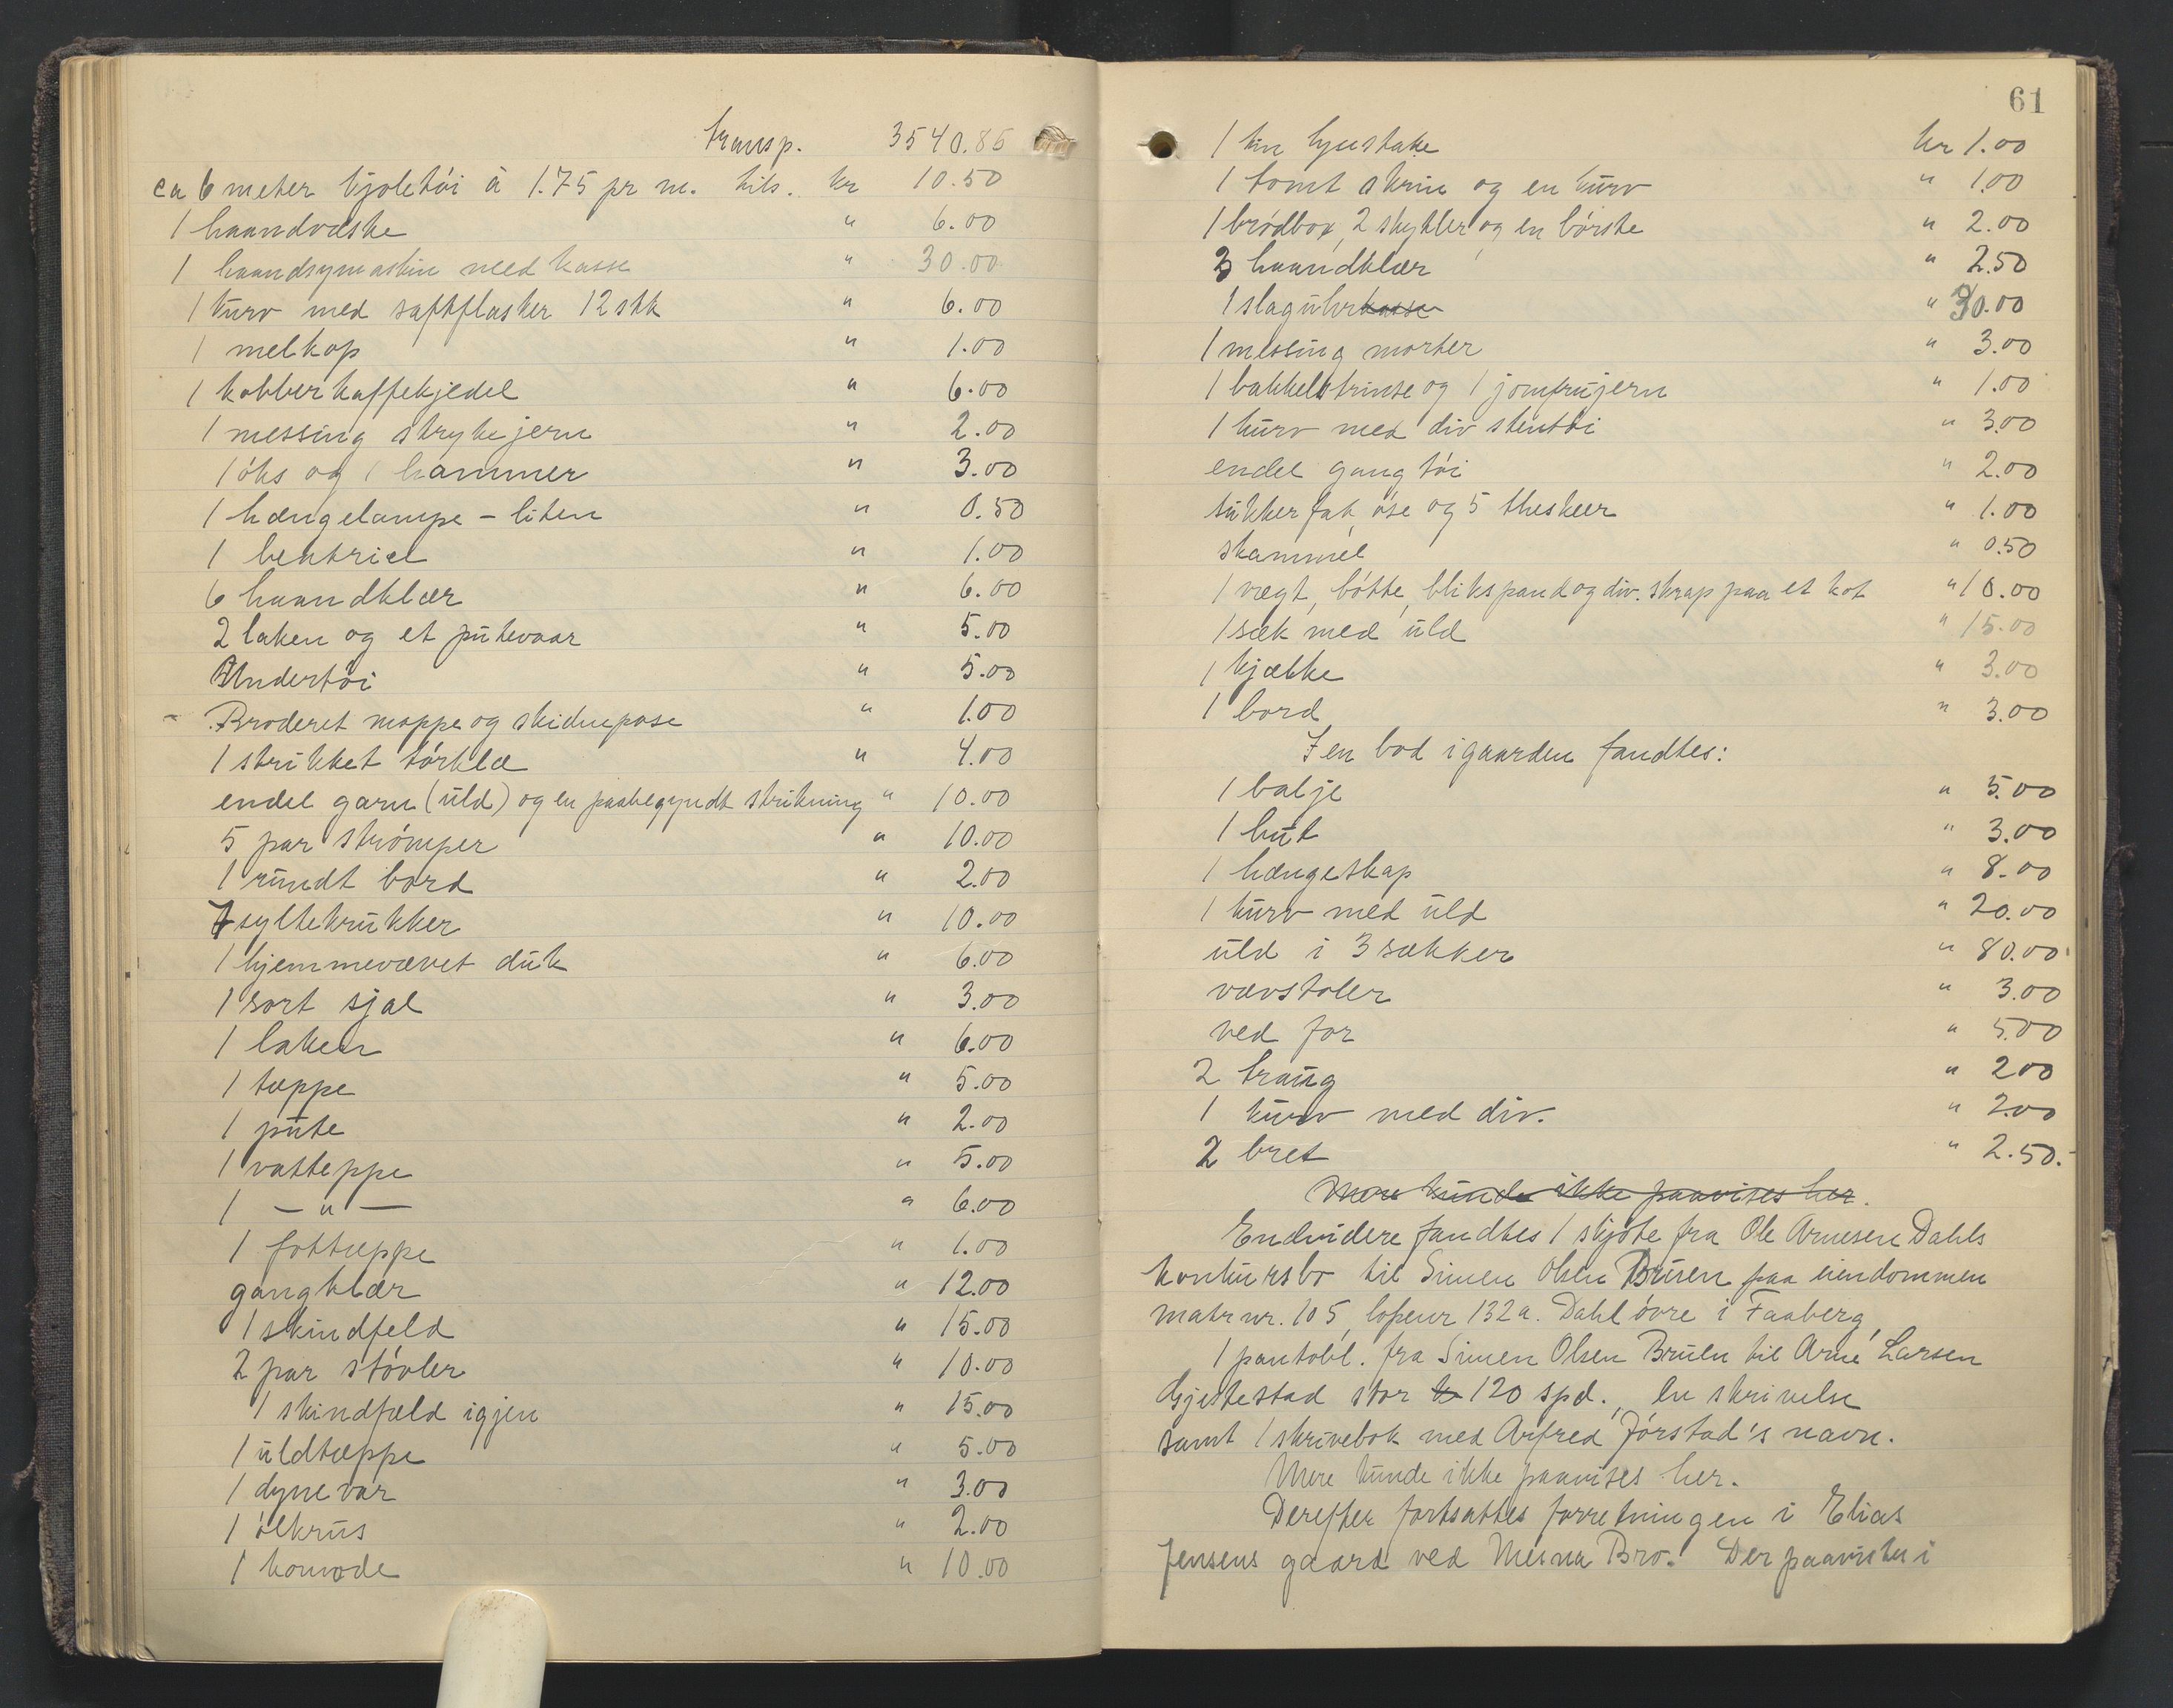 transp. 3540.85
ca 6 meter kjoletöi à 1.75 pr m. tils. kr 10.50
1 haandvæske " 6.00
1 haandsymaskin med kasse " 30.00
1 kurv med saftflasker 12 stk " 6.00
1 melkop " 1.00
1 kobberkaffekjedel " 6.00
1 messing strykejern " 2.00
1 öks og 1 hammer " 3.00
1 hængelampe - liten " 0.50
1 " 1.00
6 haandklær " 6.00
2 laken og et putevaar " 5.00
Undertöi " 5.00
- Broderet mappe og skidnepose " 1.00
1 strikket törklæ " 4.00
endel garn (uld) og en paabegyndt strikning " 10.00
5 par strömper " 10.00
1 rundt bord " 2.00
7 syltekrukker " 10.00
1 hjemmevævet duk " 6.00
1 sort sjal " 3.00
1 laken " 6.00
1 tæppe " 5.00
1 pute " 2.00
1 vatteppe " 5.00
1 — " — " 6.00
1 fottæppe " 1.00
gangklær " 12.00
1 skindfeld " 15.00
2 par stövler " 10.00
1 skindfæld igjen " 15.00
1 uldtæppe " 5.00
1 dynevar " 3.00
1 ölkrus " 2.00
1 komode " 10.00
61
1 tin lysestake kr 1.00
1 tomt skrin og en kurv " 1.00
1 brödbox, 2 stykker og en börste " 2.00
3 haandklær " 2.50
1 slaguhrkasse " 30.00
1 messing morter " 3.00
1 bakkelstrinse og 1 jomfrujern " 1.00
1 kurv med div stentöi " 3.00
endel gangtöi " 2.00
sukkerfat, öse og 5 theskeer " 1.00
skammel " 0.50
1 vægt, bötte, blikspand og div. skrap paa et kot " 10.00
1 sæk med uld " 15.00
1 kjælke " 3.00
1 bord " 3.00
I en bod i gaarden fandtes:
1 balje " 5.00
1 but " 3.00
1 hængeskap " 8.00
1 kurv med uld " 20.00
uld i 3 sækker " 80.00
vævstoler " 3.00
ved for " 5.00
2 traug " 2.00
1 kurv med div. " 2.00
2 bret " 2.50.-
Mere kunde ikke paavises her.
Endvidere fandtes 1 skjöte fra Ole Arnesen Dahls
konkursbo til Simen Olsen Bruen paa eiendommen
matr nr. 105, löpenr 132a. Dahl övre i Faaberg,
1 pantobl. fra Simen Olsen Bruen til Arne Larsen
Gjestestad stor kr 120 spd., en skrivelse
samt 1 skrivebok med Arfred Jörstad's navn.
Mere kunde ikke paavises her.
Derefter fortsattes forretningen i Elias
Jensens gaard ved Mesna Bro. Der paavistes i